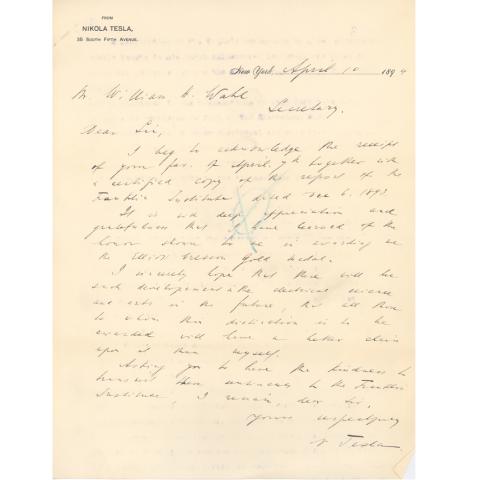 FROM
NIKOLA TESLA,
35 South Fifth Avenue.
New York, April 10 1894
Mr William H. Wahl
Secretary.
Dear Sir,
I beg to acknowledge the receipt
of your fav. of April 7th together with
a certified copy of the report of the
Franklin Institute dated Dec 6, 1893.
It is with deep appreciation and
gratefulness that I have learned of the
honor shown to me in awarding me
the Elliott Cresson Gold Medal.
I sincerely hope that there will be
such developments in the electrical science
and arts in the future, that all those
to whom this distinction is to be
awarded will have a better claim
upon it than myself.
Asking you to have the kindness to
transmit these to the Franklin
Institute, I remain, dear Sir,
Yours respectfully
N Tesla